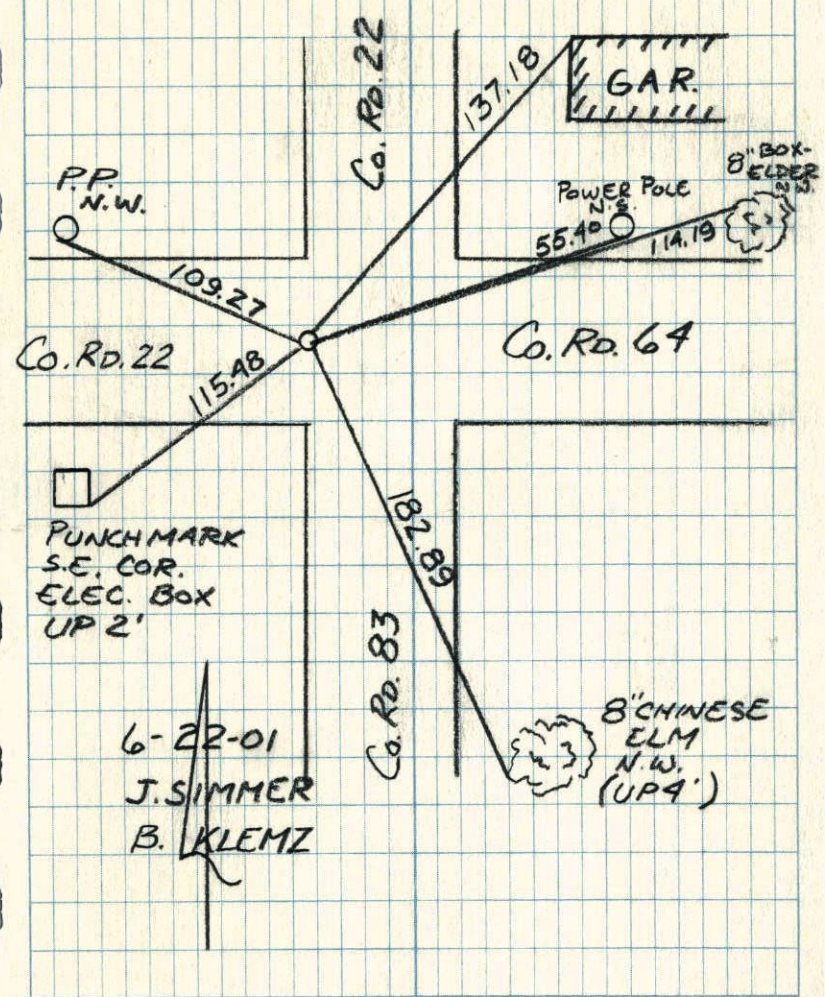 Co. Rd. 22
137.18
GAR.
8" BOX-
ELDER
P.P.
N.W.
POWER POLE
N.S.
55.40
114.19
109.27
Co. Rd. 22
Co. Rd. 64
115.48
182.89
PUNCHMARK
S.E. COR.
ELEC. BOX
UP 2'
Co. Rd. 83
8" CHINESE
ELM
N.W.
(UP 4')
6-22-01
J. SIMMER
B. KLEMZ